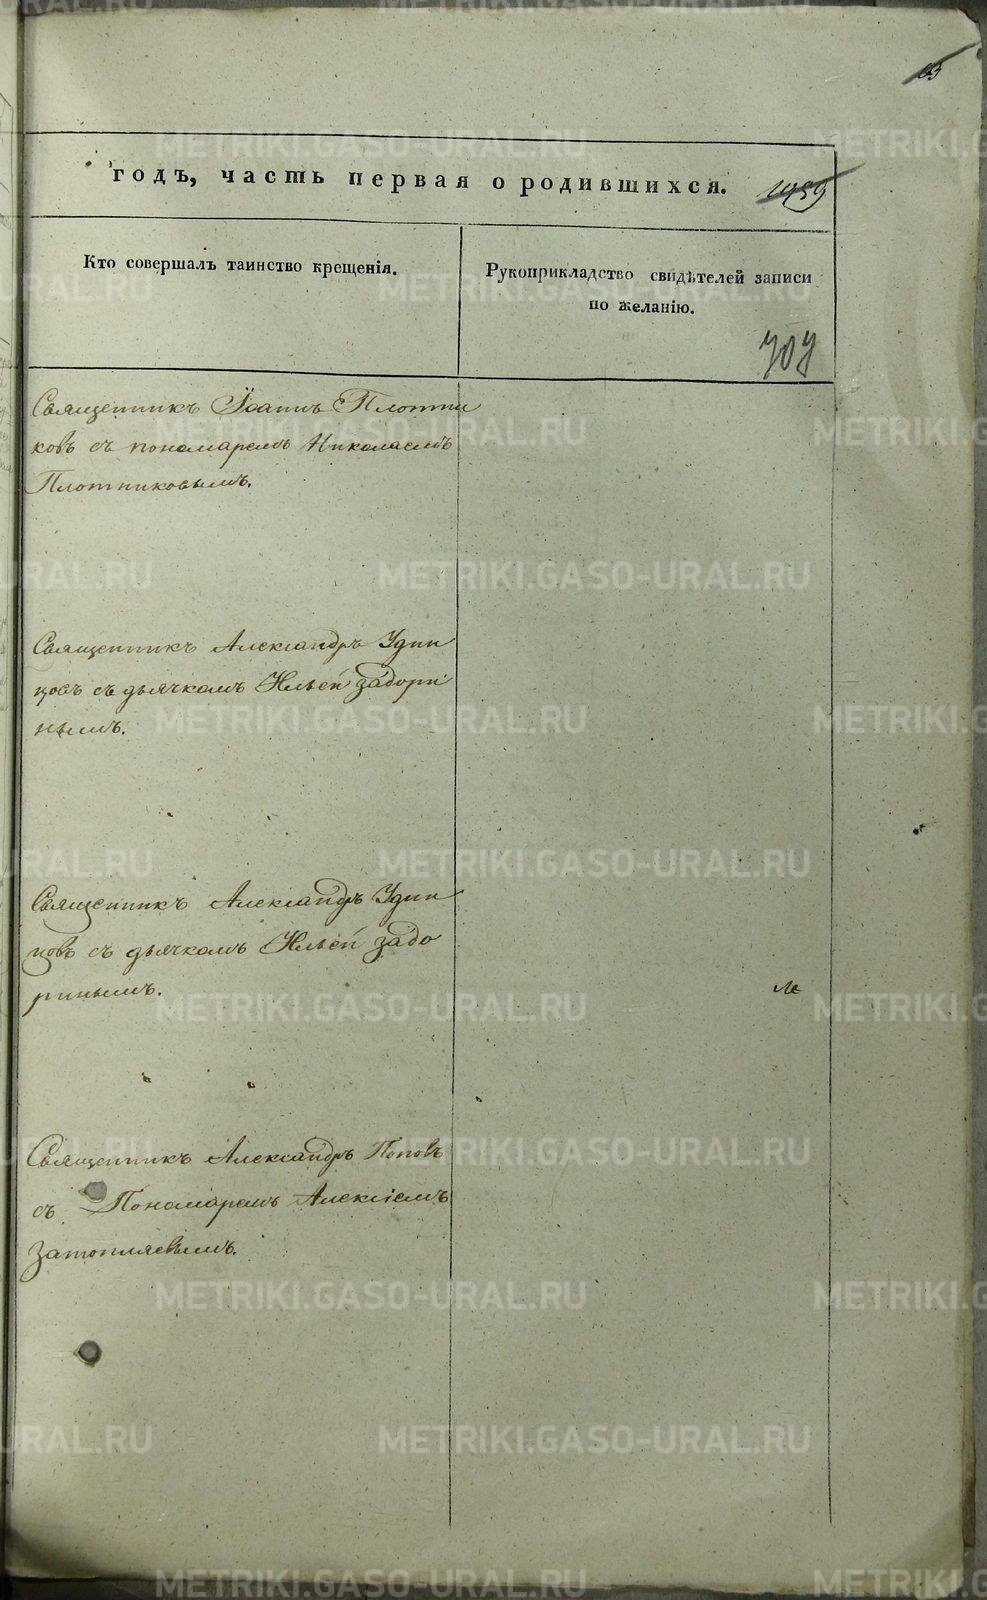 годъ, часть первая о родившихся. 1459
Кто совершалъ таинство крещенія.
Рукоприкладство свидѣтелей записи
по желанію.
Священникъ Іоаннъ Плотни
ковъ съ пономаремъ Николаемъ
Плотниковымъ.
Священникъ Александръ Удин
цовъ съ дьячкомъ Ильей Задори
нымъ.
Священникъ Александръ Удин
цовъ съ дьячкомъ Ильей Задо
ринымъ.
Священникъ Александръ Поповъ
съ Пономаремъ Алексіемъ
Затопляевымъ.
METRIKI.GASO-URAL.RU